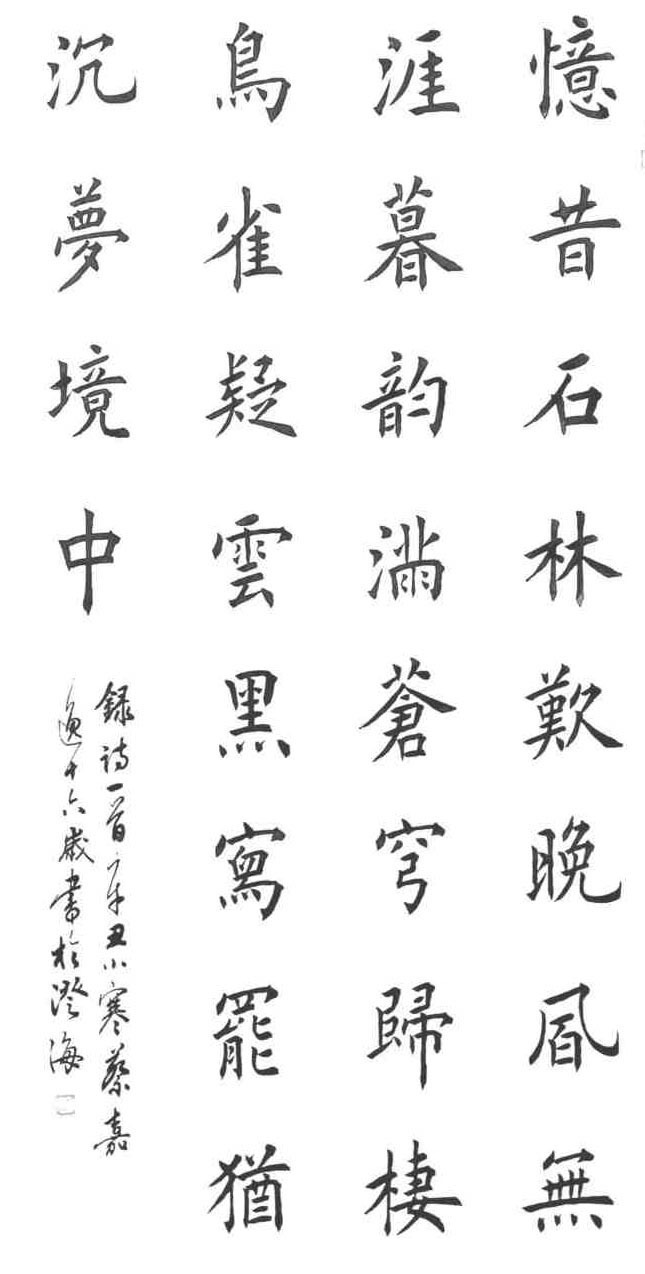 憶昔石林歎晚風無
涯暮韵满蒼穹歸棲
鳥雀疑雲黑寫罷猶
沉夢境中
録詩一首辛丑小寒蔡嘉
逸十六歲書於澄海